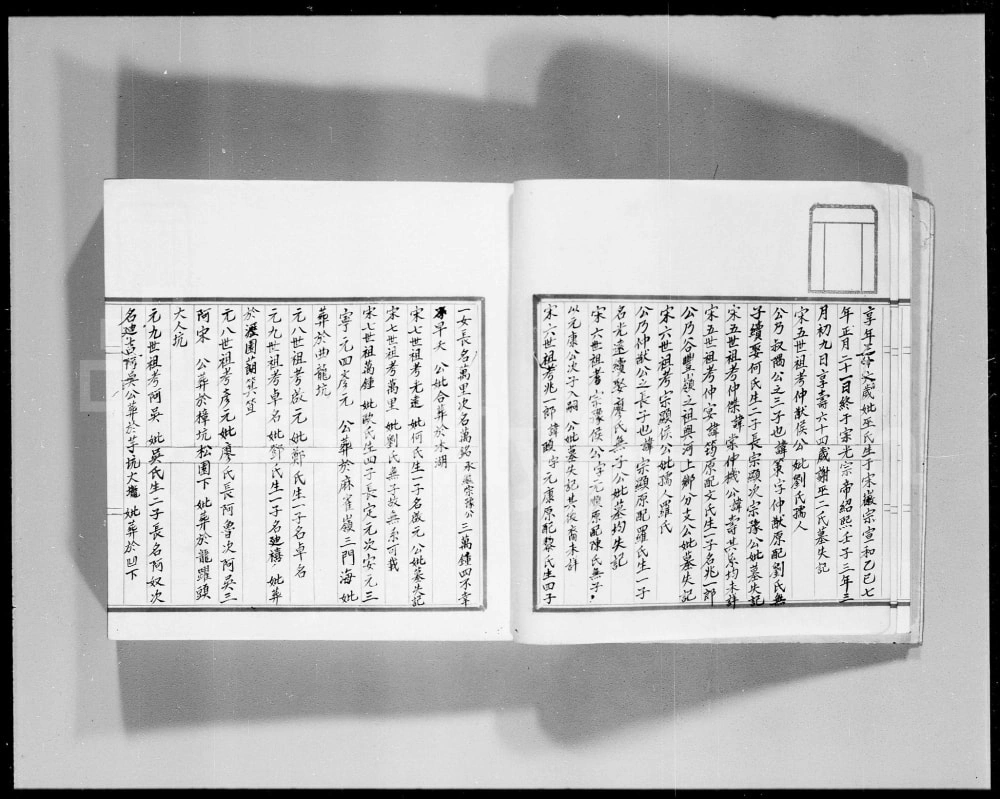 享年文歲妣巫氏生于宋徽宗宣和乙巳七
年正月二十一日終于宋光宗帝紹熙壬子三年三
月初九日享壽六十四歲謝巫二氏墓失記
宋五世祖考仲猷侯公 妣劉氏孺人
公乃叔隅公之三子也諱策字仲猷原配劉氏無
子續娶何氏生二子長宗顯次宗豫公妣墓失記
宋五世祖考仲傑諱棠仲機公諱壽其系均未詳
宋五世祖考仲宴諱筠原配文氏生一子名兆一郎
公乃谷豐嶺之祖與河上鄉分支公妣墓失記
宋六世祖考宗顯侯公妣孺人羅氏
公乃仲猷公之長子也諱宗顯原配羅氏生一子
名光遠續娶廖氏無子公妣墓均失記
宋六世祖考宗豫侯公字原配陳氏無子
以元康公次子入嗣公妣墓失記其後裔未詳
宋六世祖考兆一郎諱字元康原配黎氏生四子
一女長名萬里次名萬銘承嗣宗豫公三萬鍾四不幸
早夭 公妣合葬於水湖
宋七世祖考光遠妣何氏生一子名啟元公妣墓失記
宋七世祖考萬里妣劉氏無子故無系可載
宋七世祖萬鍾妣歐氏生四子長定元次安元三
寧元四彥元 公葬於麻雀嶺三門海妣
葬於曲龍坑
元八世祖考啟元妣鄭氏生一子名卓名
元九世祖考卓名妣鄧氏生一子名廸禧妣葬
於瀝園葫箕宜
元八世祖考彥元妣廖氏長阿魯次阿吳三
阿宋 公葬於樟坑松園下妣葬於龍躍頭
大人坑
元九世祖考阿吳妣晏氏生二子長名阿奴次
名廸吉阿吳公葬於芋坑大龍妣葬於凹下